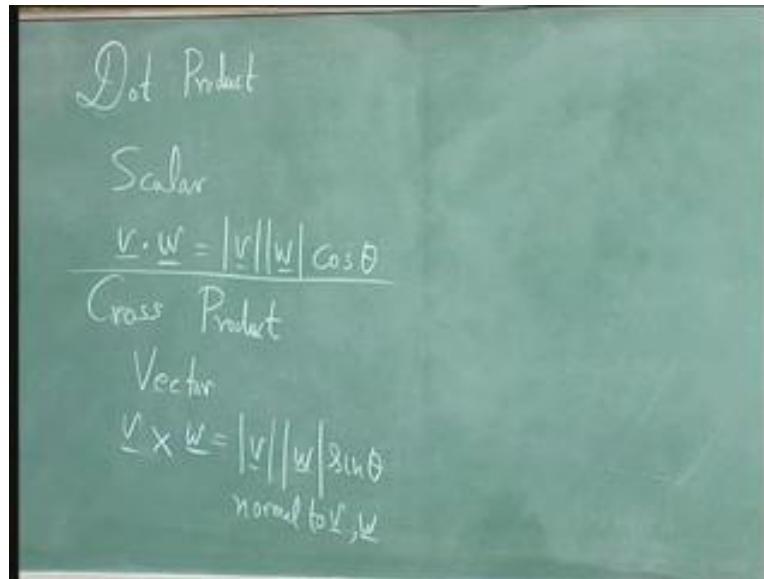 Dot Product
Scalar
v̲ · w̲ = |v̲||w̲| cos θ
Cross Product
Vector
v̲ × w̲ = |v̲||w̲| sin θ
normal to v̲, w̲